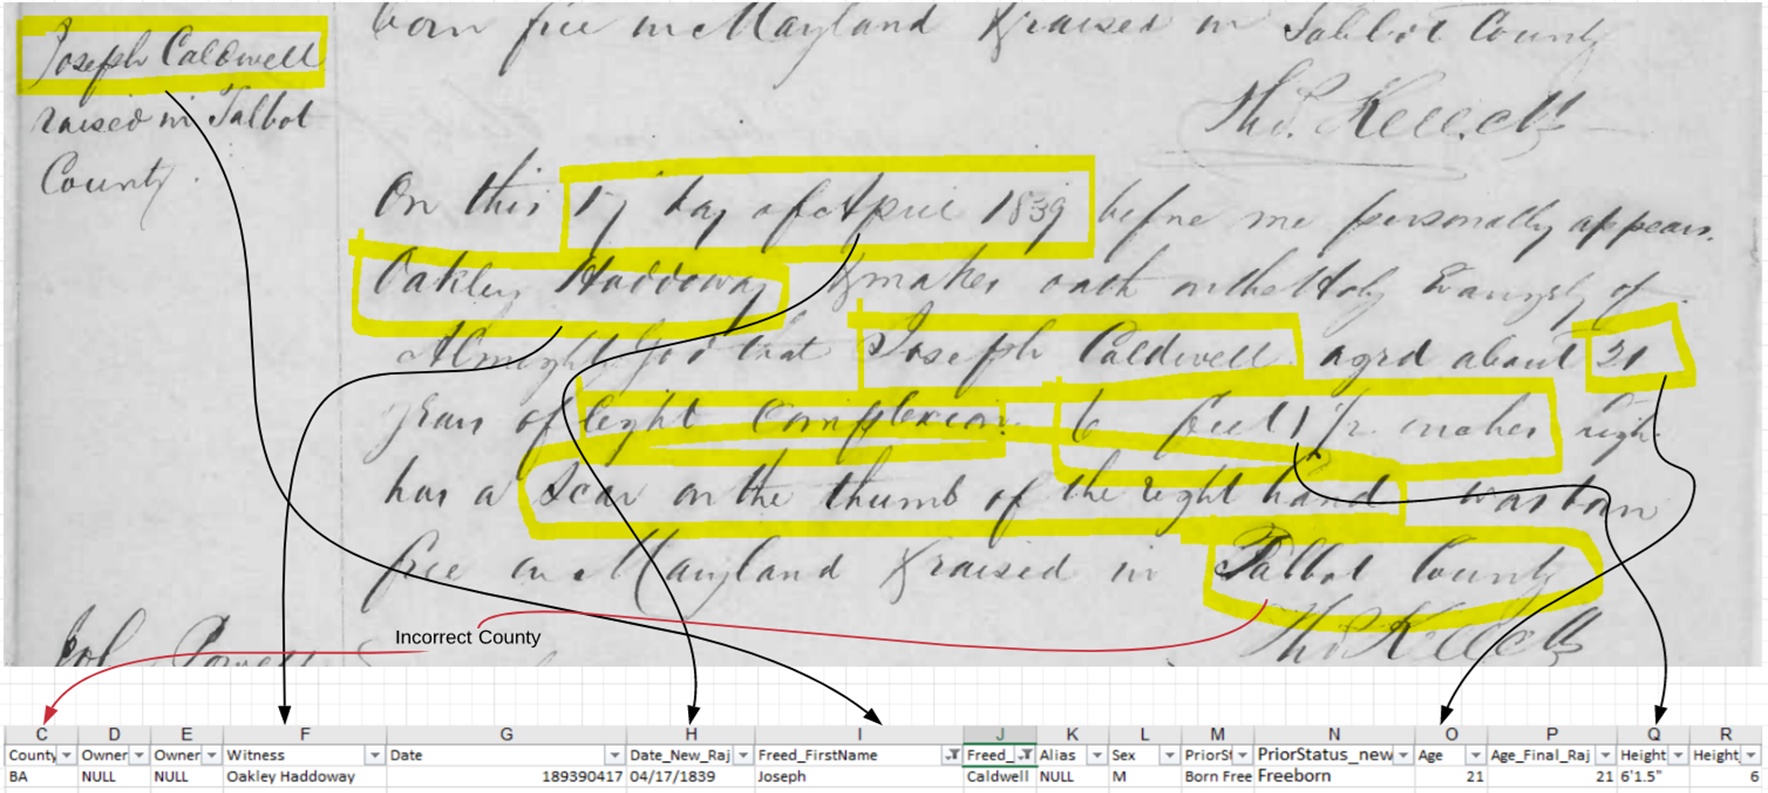 Joseph Caldwell
raised in Talbot
County.
born free in Maryland & raised in Talbot County
On this 17 day of April 1839 before me personally appears
Oakley Haddoway & makes oath on the Holy Evangely of
Almighty God that Joseph Caldwell aged about 21
years of light complexion 6 feet 1 1/2 inches high
has a scar on the thumb of the right hand was born
free in Maryland & raised in Talbot County
Incorrect County
C D E F G H I J K L M N O P Q R
County Owner Owner Witness Date Date_New_Raj Freed_FirstName Freed_ Alias Sex PriorSt PriorStatus_new Age Age_Final_Raj Height Height
BA NULL NULL Oakley Haddoway 189390417 04/17/1839 Joseph Caldwell NULL M Born Free Freeborn 21 21 6'1.5" 6